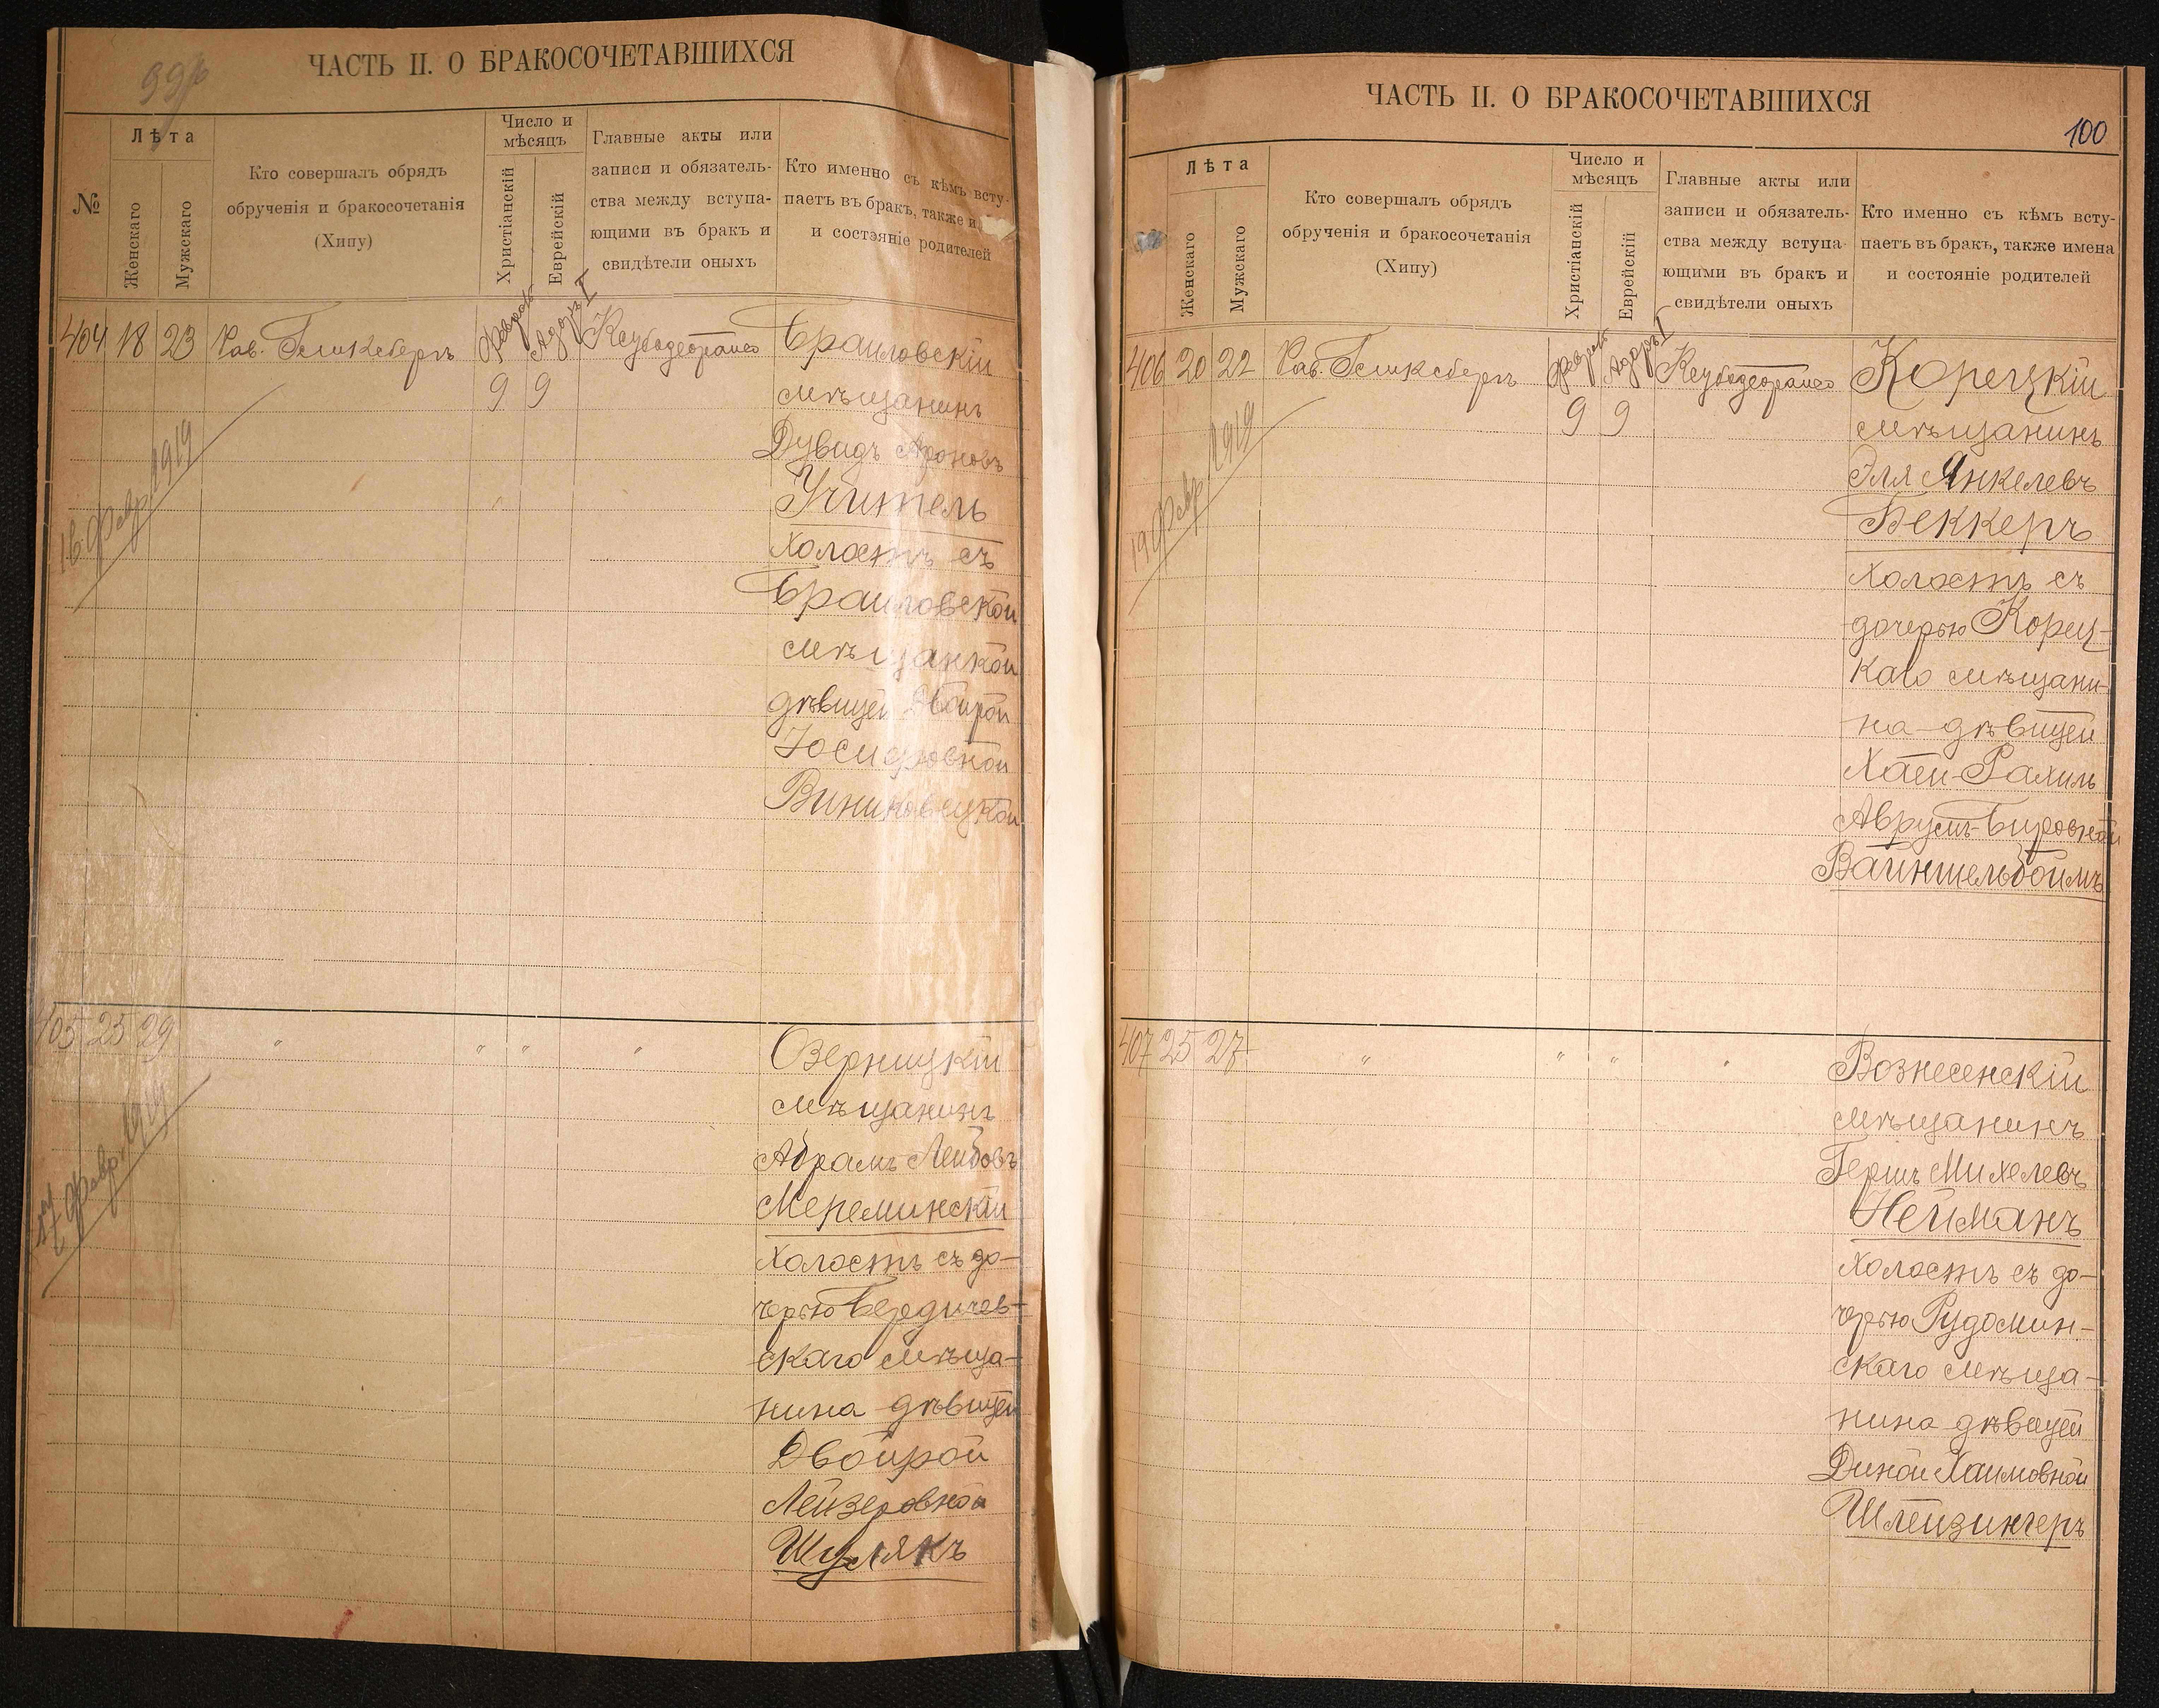 ЧАСТЬ II. О БРАКОСОЧЕТАВШИХСЯ
№
Лѣта
Женскаго
Мужскаго
Кто совершалъ обрядъ
обрученія и бракосочетанія
(Хипу)
Число и
мѣсяцъ
Христіанскій
Еврейскій
Главные акты или
записи и обязатель-
ства между вступа-
ющими въ бракъ и
свидѣтели оныхъ
Кто именно съ кѣмъ всту-
паетъ въ бракъ, также и
и состояніе родителей
404 18 23 Рав. Геликсбергъ Февраль Адоръ I
9 9
Браиловскій
мѣщанинъ
Дувидъ Ароновъ
Учитель
холостъ съ
Браиловской
мѣщанкой
дѣвицей Двойрой
Іосифовной
Виниковецкой
16 Февр. 1919
405 25 29 " " " "
Озерницкій
мѣщанинъ
Абрамъ Лейбовъ
Мереминскій
холостъ съ до-
черью Бердичев-
скаго мѣща-
нина дѣвицей
Двойрой
Лейзеровной
Шулякъ
17 Февр. 1919
ЧАСТЬ II. О БРАКОСОЧЕТАВШИХСЯ
100
Лѣта
Женскаго
Мужскаго
Кто совершалъ обрядъ
обрученія и бракосочетанія
(Хипу)
Число и
мѣсяцъ
Христіанскій
Еврейскій
Главные акты или
записи и обязатель-
ства между вступа-
ющими въ бракъ и
свидѣтели оныхъ
Кто именно съ кѣмъ всту-
паетъ въ бракъ, также имена
и состояніе родителей
406 20 22 Рав. Геликсбергъ Феврал Адоръ I
9 9
Корецкій
мѣщанинъ
Эля Янкелевъ
Беккеръ
холостъ съ
дочерью Корец-
каго мѣщани-
на дѣвицей
Хаей-Рахиль
Аврумъ-Беровной
Вайнтельбоймъ
19 Февр. 1919
407 25 27 " " " "
Вознесенскій
мѣщанинъ
Гершъ Михелевъ
Нейманъ
холостъ съ до-
черью Рудомин-
скаго мѣща-
нина дѣвицей
Диной Хаимовной
Шлейзингеръ